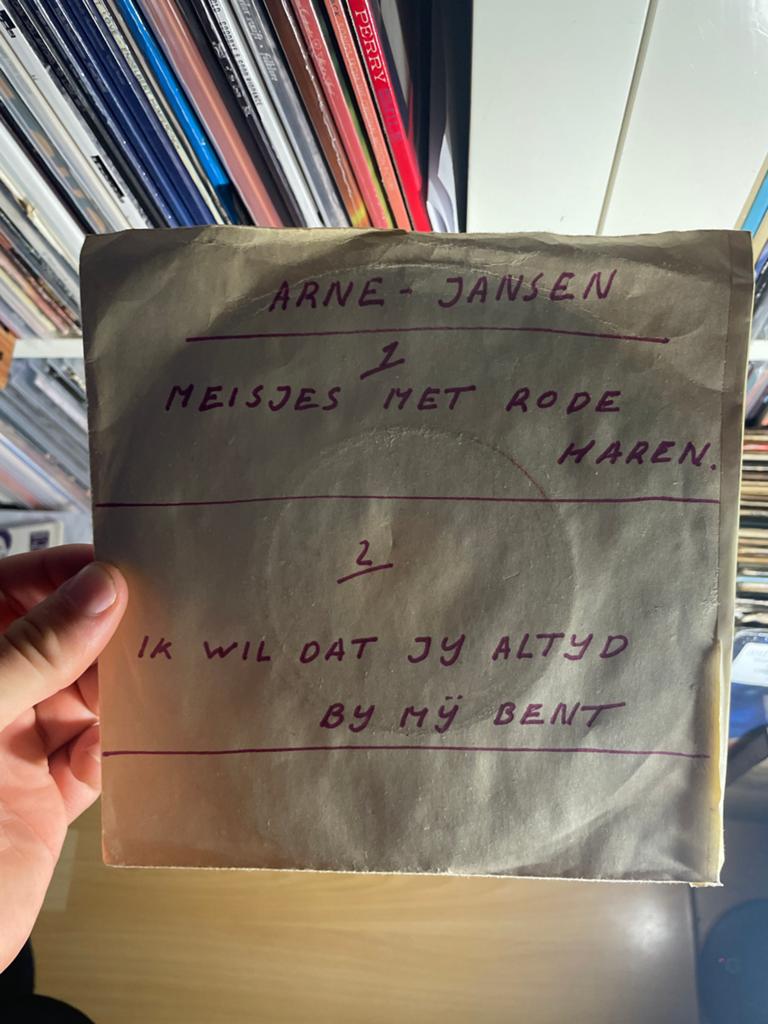 PERRY
ARNE - JANSEN
1
MEISJES MET RODE
HAREN.
2
IK WIL DAT JY ALTYD
BY MŸ BENT